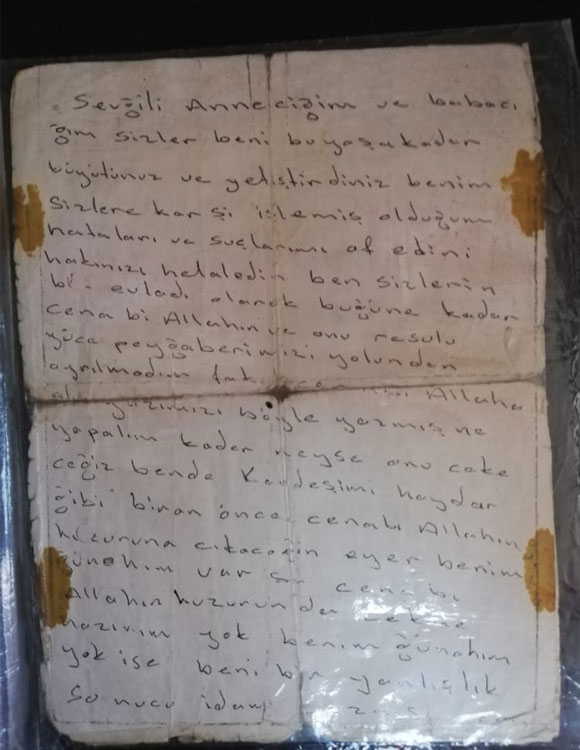 Sevğili Anneciğim ve babacı
ğım sizler beni bu yaşa kadar
büyütünüz ve yetiştirdiniz benim
Sizlere karşi işlemiş olduğum
hataları ve suçlarımı af edini
hakınızı helaledin ben sizlerin
bi evladı olarak buğüne kadar
cena bi Allahın ve onu resulu
yüca peyğaberimizi yolundan
ayrılmadım Allaha
yazımızı böyle yazmış ne
yapalım kader neyse onu çeke
ceğiz bende Kardeşimi haydar
ğibi biran önce cenabı Allahın
huzuruna cıkacağın eyer benim
ğünahım var sa cena bı
Allahın huzurunda
hazırım yok benim ğünahım
yok ise beni bir yanlışlık
Sonucu idam